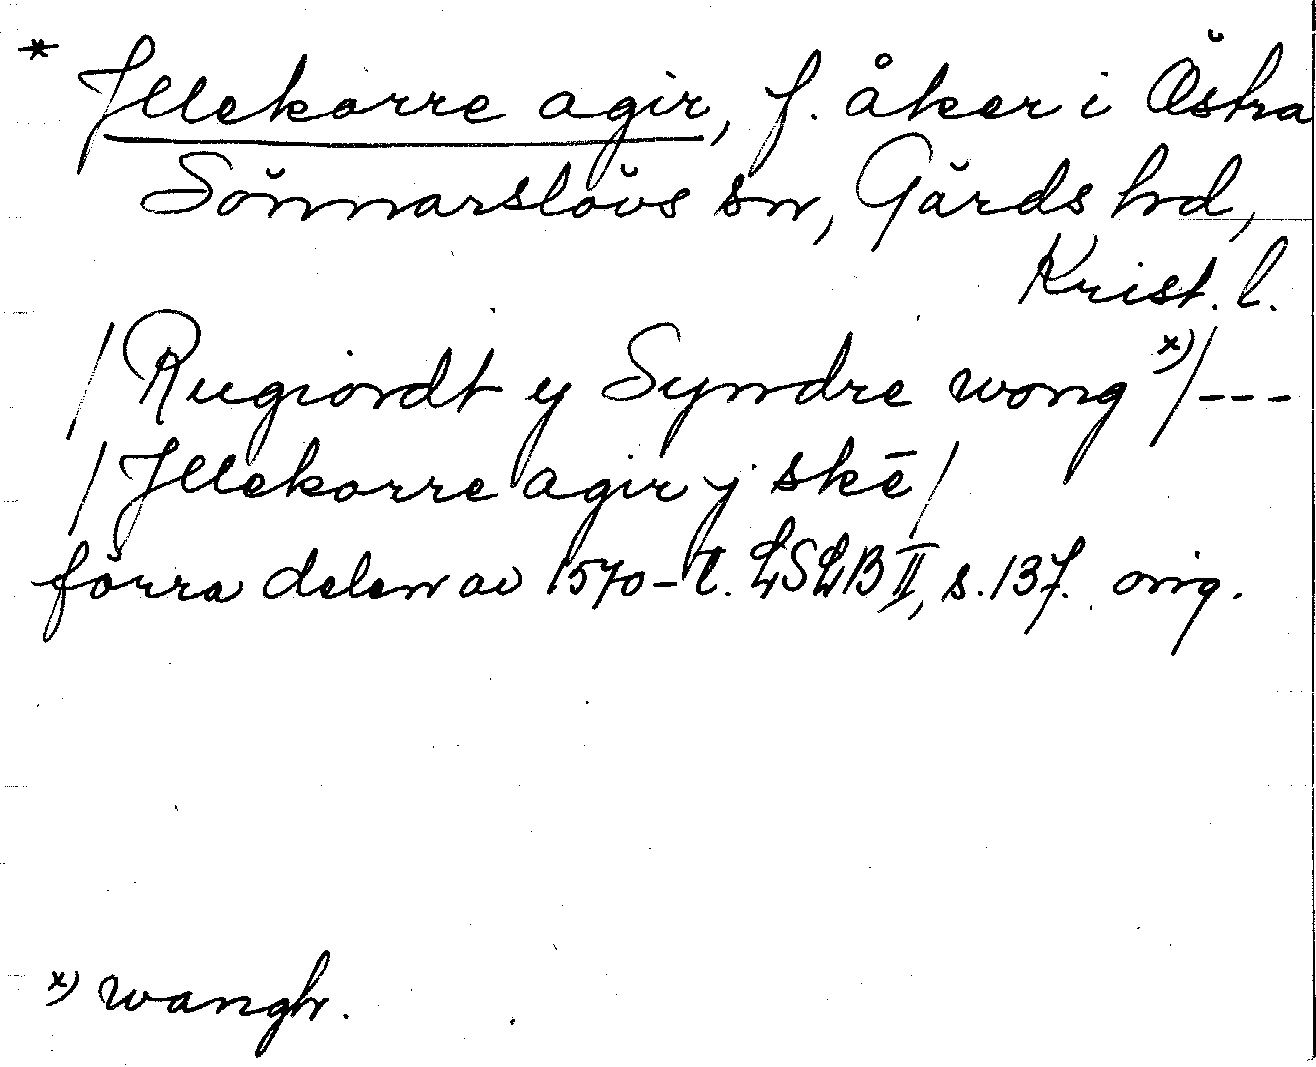 * Jllekorre agir, f. åker i Östra
Sönnarslövs sn, Gärds hd,
Krist. l.
/Rugiordt y Syndre wong x)/---
/Jllekorre agir j skē/
förra delen av 1570-t. LSLB II, s. 137. orig.
x) wangh.